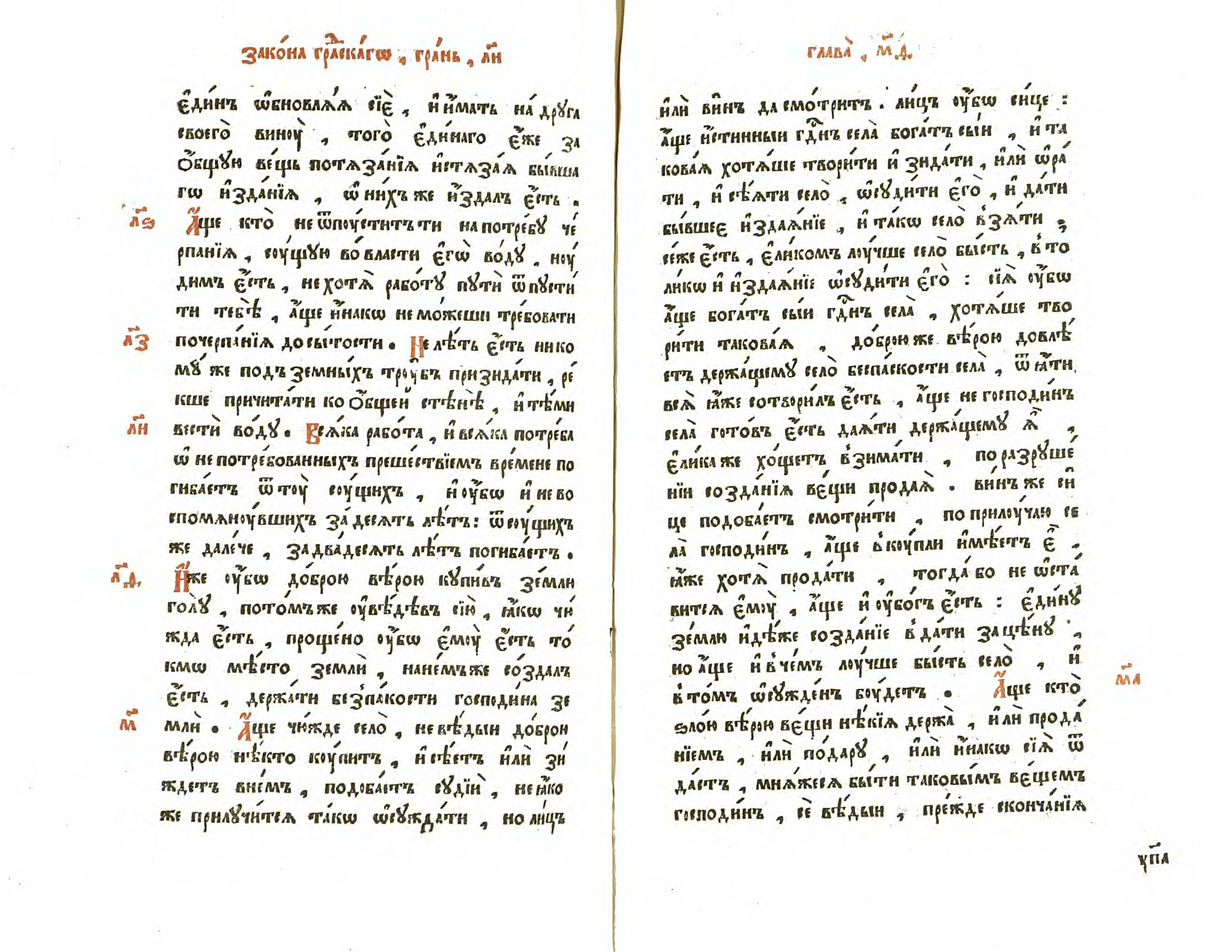 Зако́на гра́дскагѡ, гра́нь, л҃и
є҆ди́нъ ѡ҆бновлѧ́ѧ сїѐ, и҆ и҆́мать на дрꙋ́га
своегѡ̀ винꙋ̀, того̀ є҆ди́наго є҆́же за
ѻ҆́бщꙋю ве́щь потѧза́нїѧ и҆стѧза́ѧ бы́вша
гѡ и҆зда́нїѧ, ѡ҆ ни́хъ же и҆зда́лъ є҆́сть.
л҃ѕ А҆́ще кто̀ не ѿпꙋ́ститъ ти на потре́бꙋ че́
рпанїѧ, сꙋ́щꙋю во вла́сти є҆гѡ̀ во́дꙋ, нꙋ́
димъ є҆́сть, не хотѧ̀ рабо́тꙋ пꙋтѝ ѿпꙋсти́
ти тебѣ̀, а҆́ще и҆́накѡ не мо́жеши тре́бовати
л҃з почерпа́нїѧ до сы́тости. Не лѣ́ть є҆́сть нико
мꙋ́ же подъ зе́мныхъ трꙋ́бъ призида́ти, ре́
кше причита́ти ко ѻ҆́бщей стѣнѣ̀, и҆ тѣ́ми
л҃и вестѝ во́дꙋ. Всѧ́ка рабо́та, и҆ всѧ́ка потре́ба
ѡ҆ не потре́бованныхъ преше́ствїемъ вре́мене по
гиба́етъ ѿ тꙋ̀ сꙋ́щихъ, и҆ ᲂу҆́бѡ и҆ не во
спомѧнꙋ́вшихъ за де́сѧть лѣ́тъ: ѿсꙋ́щихъ
же дале́че, за два́десѧть лѣ́тъ погиба́етъ.
л҃ѳ И҆́же ᲂу҆́бѡ до́брою вѣ́рою кꙋпи́въ зе́мли
го́лꙋ, пото́мъ же ᲂу҆вѣ́дѣвъ сїю̀, ꙗ҆́кѡ чꙋ́
жда є҆́сть, проще́но ᲂу҆́бѡ є҆мꙋ̀ є҆́сть то́
кмѡ мѣ́сто землѝ, на не́мъ же созда́лъ
є҆́сть, держа́ти без̾ па́кости господи́на зе
м҃ млѝ. А҆́ще чꙋ́жде село̀, не вѣ́дыи до́брою
вѣ́рою нѣ́кто кꙋ́питъ, и҆ сѣ́етъ и҆лѝ зи́
ждетъ в не́мъ, подоба́етъ сꙋдїѝ, не ꙗ҆́ко
же прилꙋчи́тсѧ та́кѡ ѡ҆сꙋжда́ти, но ли́цъ
глава̀, м҃ѳ.
и҆лѝ ви́нъ да смо́тритъ. ли́цъ ᲂу҆́бѡ си́це:
а҆́ще и҆́стинныи гдⷭ҇нъ села̀ бога́тъ сы́и, и҆ та
кова́ѧ хотѧ́ше твори́ти и҆ зида́ти, и҆лѝ ѡ҆ра́
ти, и҆ сѣ́ѧти село̀, ѡ҆сꙋди́ти є҆го̀, и҆ да́ти
бы́вшее и҆здаѧ́нїе, и҆ та́кѡ село̀ взѧ́ти;
се́же є҆́сть, є҆ли́комъ лꙋ́чше село̀ бы́сть, в то
ли́кѡ и҆ и҆здаѧ́нїе ѡ҆сꙋди́ти є҆го̀: сїѧ̀ ᲂу҆́бѡ
а҆́ще бога́тъ сы́и гдⷭ҇нъ села̀, хотѧ́ше тво
ри́ти такова́ѧ, до́брою же вѣ́рою довлѣ́
етъ держа́щемꙋ село̀ бес̾па́кости села̀, ѿꙗ҆́ти
всѧ̀ ꙗ҆̀же сотвори́лъ є҆́сть, а҆́ще не господи́нъ
села̀ гото́въ є҆́сть даѧ́ти держа́щемꙋ ѧ҆̀,
є҆ли́ка же хо́щетъ взима́ти, по разрꙋше́
нїи созда́нїѧ ве́щи прода́ѧ. ви́нъ же си́
це подоба́етъ смотри́ти, по прилꙋча́ю се
ла̀ господи́нъ, а҆́ще вкꙋ́пли и҆мѣ́етъ є҆̀,
ꙗ҆́же хотѧ̀ прода́ти, тогда́ бо не ѡ҆ста́
витсѧ є҆мꙋ̀, а҆́ще и҆ ᲂу҆бо́гъ є҆́сть: є҆ди́нꙋ
зе́млю и҆дѣ́же созда́нїе в̾да́ти за цѣ́нꙋ,
но а҆́ще и҆ в че́мъ лꙋ́чше бы́сть село̀, и҆
в то́мъ ѡ҆сꙋжде́нъ бꙋ́детъ. А҆́ще кто̀ м҃а
ѕло́ю вѣ́рою ве́щи нѣ́кїѧ держа̀, и҆́ли прода́
нїемъ, и҆лѝ по́дарꙋ, и҆лѝ и҆́накѡ сїѧ̀ ѿ
да́стъ, мнѧ́жесѧ бы́ти таковы́мъ ве́щемъ
господи́нъ, сѐ вѣ́дыи, пре́жде сконча́нїѧ
ᲂу҆п҃а